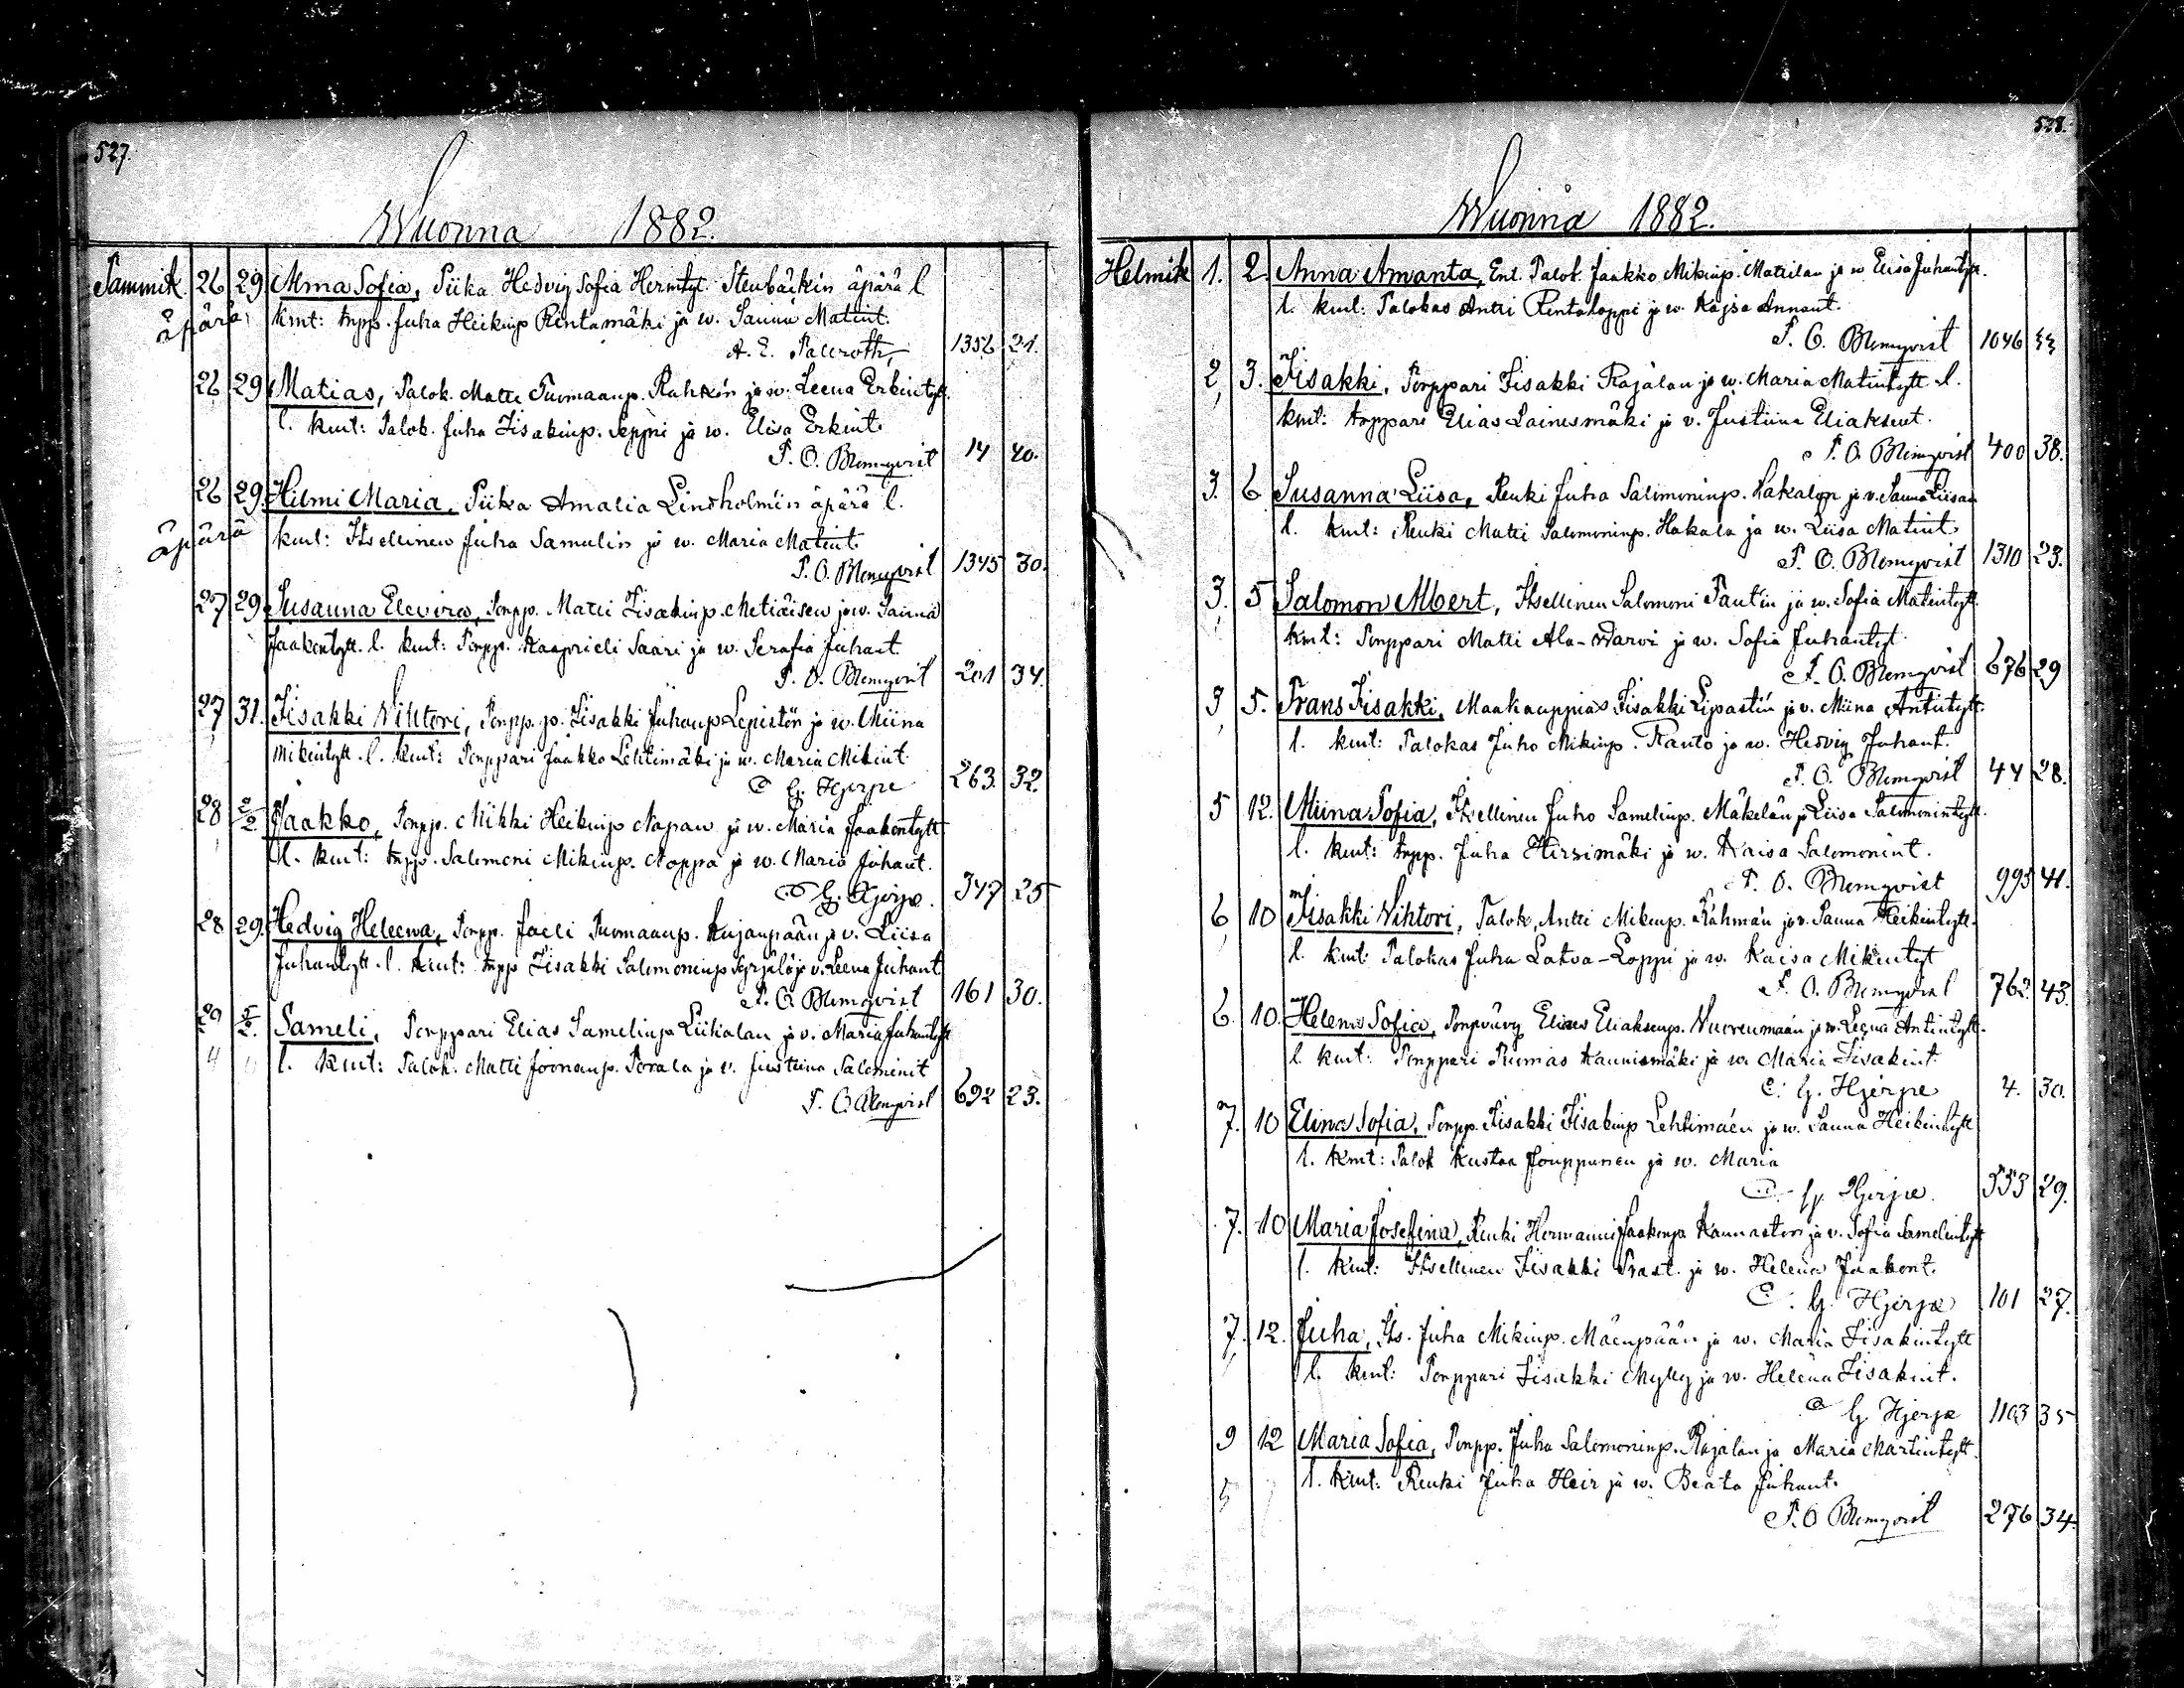 527.
Wuonna 1882.
Tammik. 26 29 Alma Sofia, Piika Hedvig Sofia Hermtyt. Stenbäckin äpärä l.
äpärä kmt: tnpp. Juha Heikinp Rintamäki ja w. Sanna Matint.
A. E. Palcroth, 1356 21.
26 29 Matias, Talok. Matti Tuomaanp. Rahkon ja w. Leena Erkintyt.
l. kmt: Talok. Juha Iisakinp. Seppi ja w. Elisa Erkint.
F. O. Blomqvist 14 40.
26 29. Hilmi Maria, Piika Amalia Lindholmin äpärä l.
äpärä kmt: Itsellinen Juha Samulin ja w. Maria Matint.
F. O. Blomqvist 1345 30.
27 29 Susanna Elevira, Torpp. Matti Iisakinp. Metiäisen ja w. Sanna
Jaakontytt. l. kmt: Torpp. Kaaprieli Saari ja w. Serafia Juhant.
F. O. Blomqvist 201 34.
27 31. Iisakki Nihtori, Torpp. po. Iisakki Juhanp Lepistön ja w. Miina
Mikintytt. l. kmt: Torppari Jaakko Lehtimäki ja w. Maria Mikint.
C G. Hjerpe 263. 32.
28 2/2 Jaakko, Torpp. Mikki Heikinp Napan ja w. Maria Jaakontytt
l. kmt: tnpp. Salomoni Mikinp. Noppa ja w. Maria Juhant.
C G. Hjerpe. 347 25
28 29. Hedvig Heleena, Torpp. Joeli Tuomaanp. Kujanpään ja v. Liisa
Juhantytt. l. kmt: tnpp Iisakki Salomoninp Syrjälä ja v. Leena Juhant.
F. O. Blomqvist 161 30.
29 5/2. Sameli, Torppari Elias Samelinp Luhalan ja v. Maria Juhantytt
l. kmt: Talok. Matti Joonanp. Porala ja v. Justiina Salominit
F. O. Blomqvist 692 23.
528.
Wuonna 1882.
Helmik 1. 2. Anna Amanta, Ent. Talok. Jaakko Mikinp. Mattilan ja w Elisa Juhantyt.
l. kmt: Talokas Antti Rintaloppi ja w. Kajsa Annant.
F. O. Blomqvist 1046
2, 3. Iisakki, Torppari Iisakki Rajalan ja w. Maria Matintytt l.
kmt: torppari Elias Lainesmäki ja v. Justiina Eliaksent.
F. O. Blomqvist 400 38.
3. 6 Susanna Liisa, Renki Juha Salomoninp. Hakalan ja v. Sanna Liisan
l. kmt: Renki Matti Salomoninp. Hakala ja w. Liisa Matint.
F. O. Blomqvist 1310 23.
3. 5 Salomon Albert, Itsellinen Salomoni Pantin ja w. Sofia Matintytt.
kmt: Torppari Matti Ala-Warvi ja w. Sofia Juhantyt
F. O. Blomqvist 676 29
3 5. Frans Iisakki, Maakauppias Iisakki Lipastin ja v. Miina Antintytt.
l. kmt: Talokas Juho Mikinp. Ranto ja w. Hedvig Juhant.
F. O. Blomqvist 44 28.
5 12. Miina Sofia, Itsellinen Juho Samelinp. Mäkelän ja Liisa Salomonintytt.
l. kmt: tnpp. Juha Hirsimäki ja w. Kaisa Salomonint.
F. O. Blomqvist 995 41.
6 10 Iisakki Nihtori, Talok. Antti Mikinp. Rahman ja v. Sanna Heikintytt.
l. kmt: Talokas Juha Latva-Loppi ja w. Kaisa Mikintyt
F. O. Blomqvist 762. 43.
6. 10. Helena Sofia, Torpvävy Elias Eliaksenp. Nuorenmaan ja w. Leena Antintytt.
l kmt: Torppari Tuomas Kaunismäki ja w. Maria Iisakint.
C. G. Hjerpe 4. 30.
7. 10 Elina Sofia, Torpp. Iisakki Iisakinp Lehtimäen ja w. Sanna Heikintytt
l. kmt: Talok Kustaa Jouppunen ja w. Maria
C. G. Hjerpe. 553 29.
7. 10 Maria Josefina, Renki Hermanni Jaakonp Kannaston ja v. Sofia Samelintytt
l. kmt: Itsellinen Iisakki Prast. ja w. Helena Jaakont.
C. G. Hjerpe 101 27.
7. 12. Juha, Its. Juha Mikinp. Mäenpään ja w. Maria Iisakintytt
l. kmt: Torppari Iisakki Mylly ja w. Helena Iisakint.
C G. Hjerpe 1103 35
9 12 Maria Sofia, Torpp. Juha Salomoninp. Rajalan ja Maria Martintytt.
l. kmt: Renki Juha Heir ja w. Beata Juhant.
F. O Blomqvist 276 34.